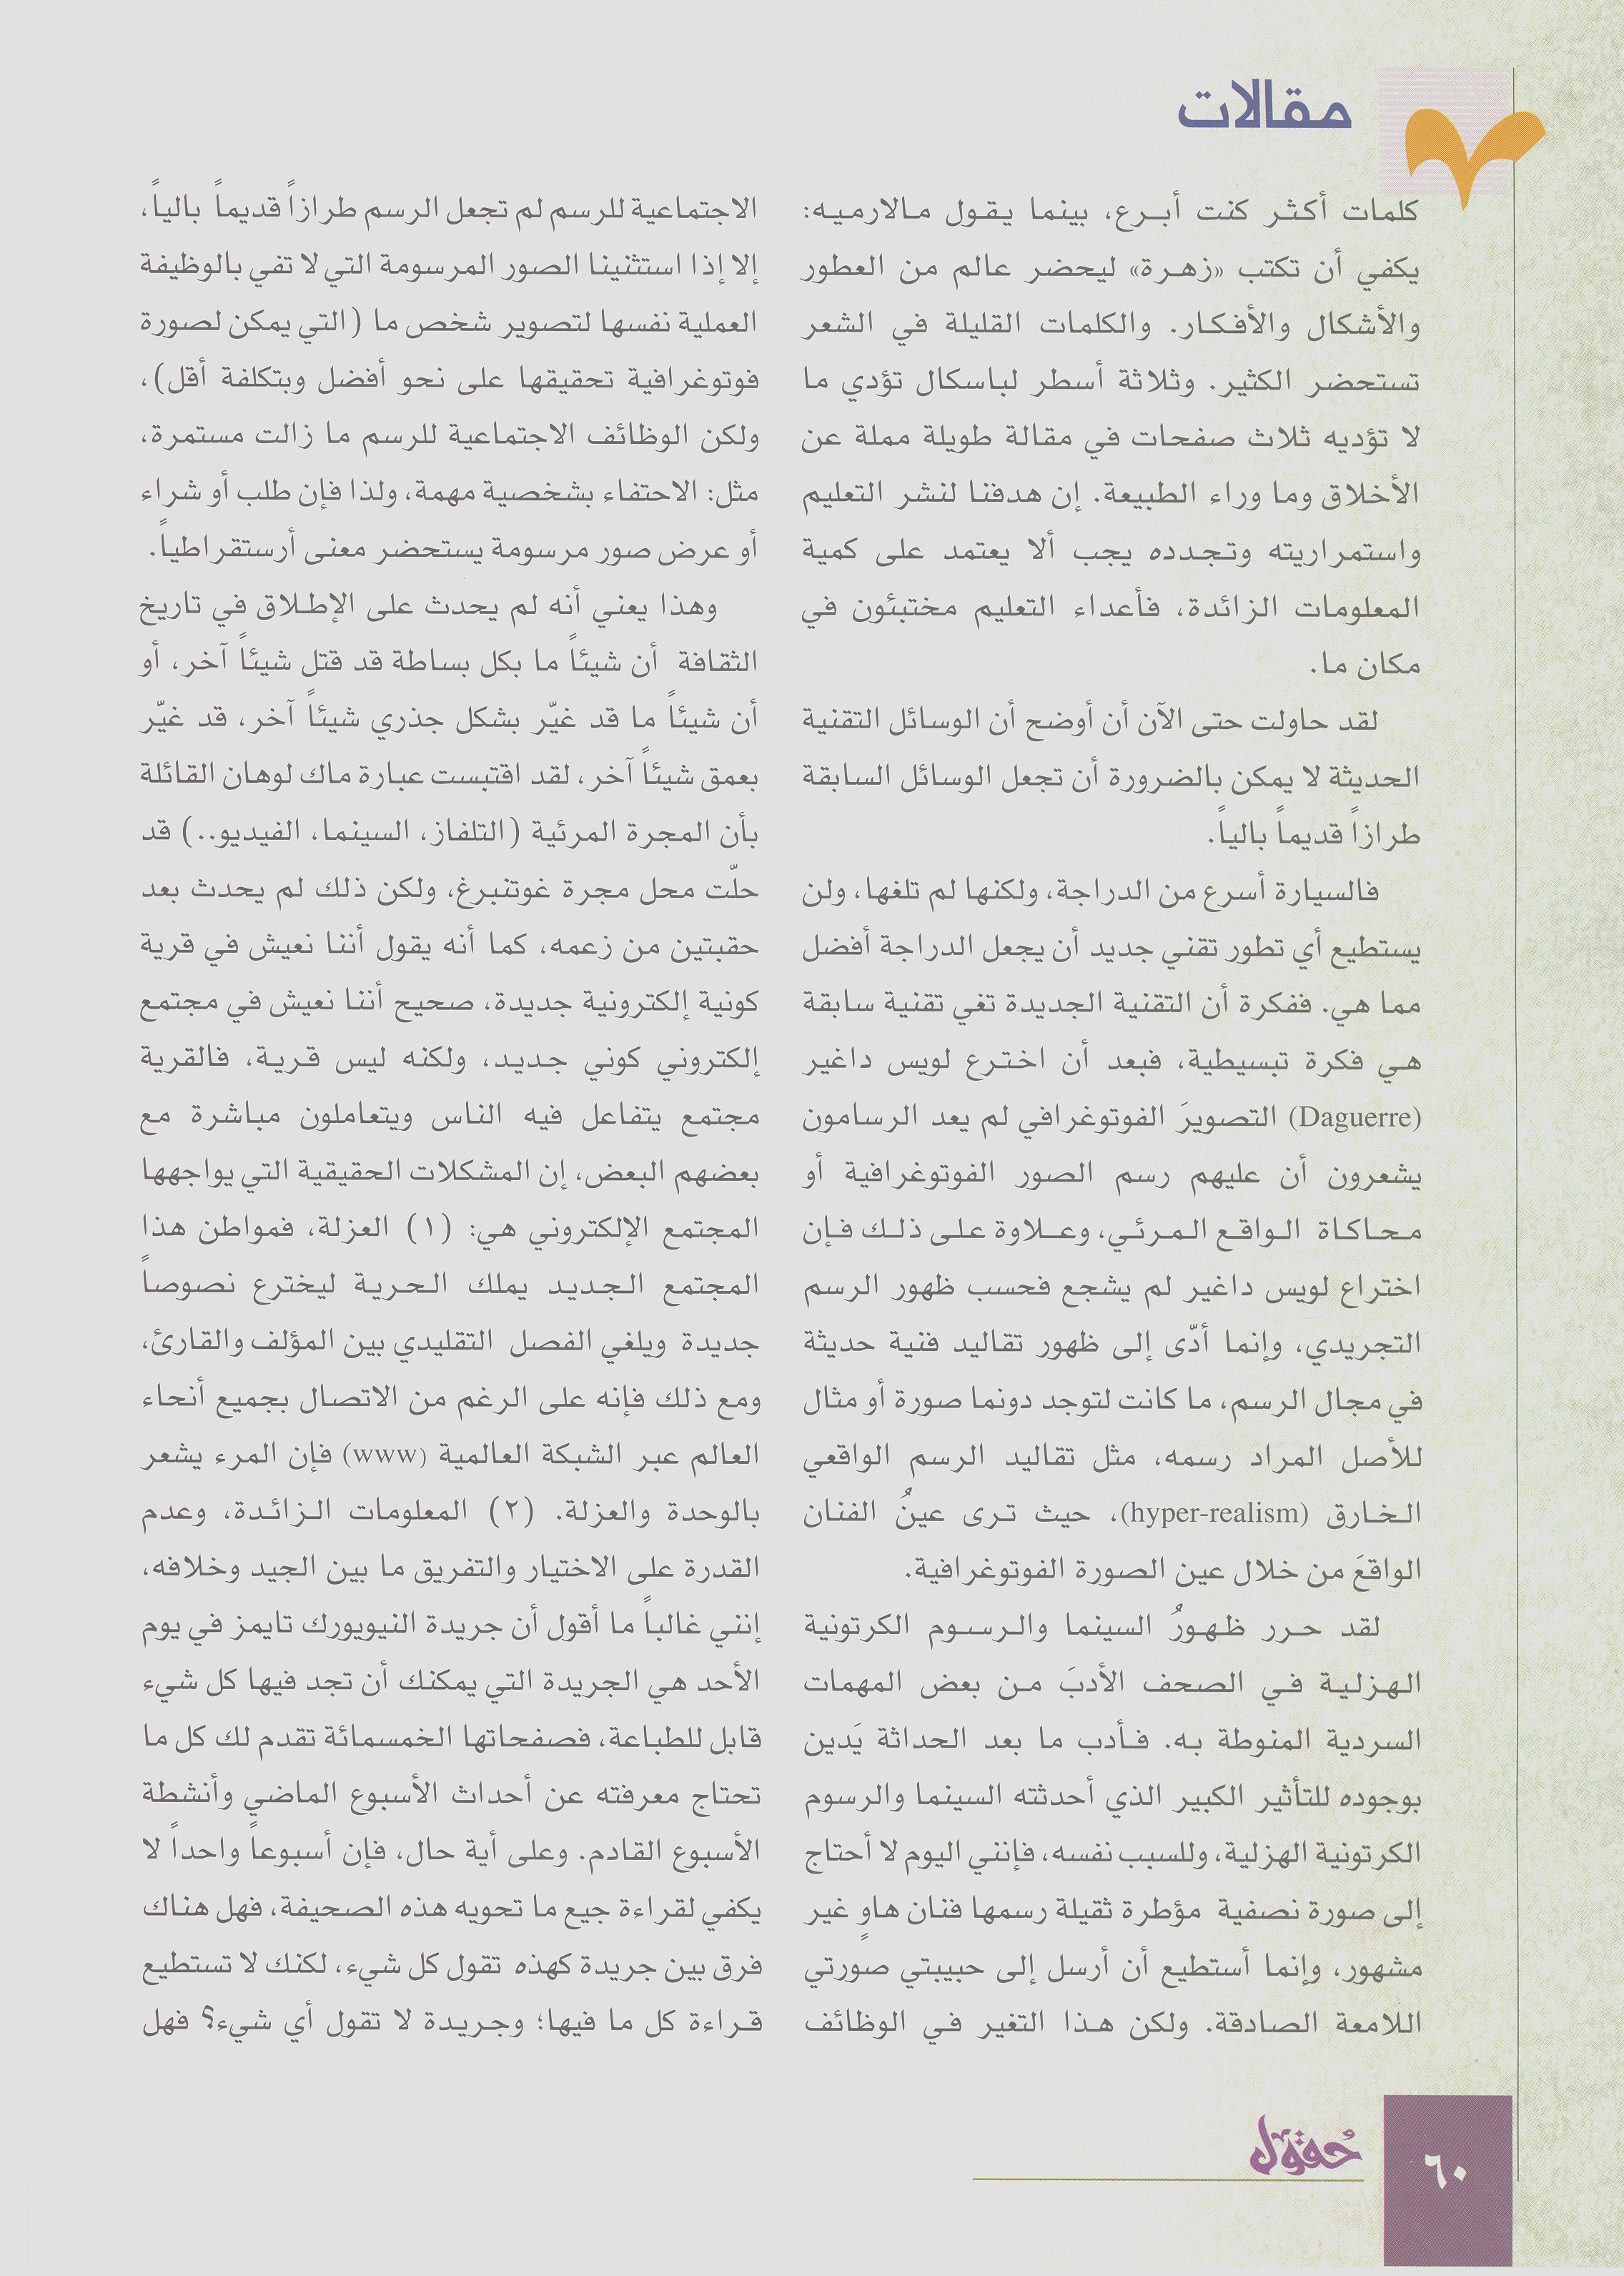 مقالات
كلمات أكثر كنت أبرع، بينما يقول مالارميه:
يكفي أن تكتب «زهرة» ليحضر عالم من العطور
والأشكال والأفكار. والكلمات القليلة في الشعر
تستحضر الكثير. وثلاثة أسطر لباسكال تؤدي ما
لا تؤديه ثلاث صفحات في مقالة طويلة مملة عن
الأخلاق وما وراء الطبيعة. إن هدفنا لنشر التعليم
واستمراريته وتجدده يجب ألا يعتمد على كمية
المعلومات الزائدة، فأعداء التعليم مختبئون في
مكان ما.
لقد حاولت حتى الآن أن أوضح أن الوسائل التقنية
الحديثة لا يمكن بالضرورة أن تجعل الوسائل السابقة
طرازاً قديماً بالياً.
فالسيارة أسرع من الدراجة، ولكنها لم تلغها، ولن
يستطيع أي تطور تقني جديد أن يجعل الدراجة أفضل
مما هي. ففكرة أن التقنية الجديدة تغي تقنية سابقة
هي فكرة تبسيطية، فبعد أن اخترع لويس داغير
(Daguerre) التصويرَ الفوتوغرافي لم يعد الرسامون
يشعرون أن عليهم رسم الصور الفوتوغرافية أو
محاكاة الواقع المرئي، وعلاوة على ذلك فإن
اختراع لويس داغير لم يشجع فحسب ظهور الرسم
التجريدي، وإنما أدّى إلى ظهور تقاليد فنية حديثة
في مجال الرسم، ما كانت لتوجد دونما صورة أو مثال
للأصل المراد رسمه، مثل تقاليد الرسم الواقعي
الخارق (hyper-realism)، حيث ترى عينُ الفنان
الواقعَ من خلال عين الصورة الفوتوغرافية.
لقد حرر ظهورُ السينما والرسوم الكرتونية
الهزلية في الصحف الأدبَ من بعض المهمات
السردية المنوطة به. فأدب ما بعد الحداثة يَدين
بوجوده للتأثير الكبير الذي أحدثته السينما والرسوم
الكرتونية الهزلية، وللسبب نفسه، فإنني اليوم لا أحتاج
إلى صورة نصفية مؤطرة ثقيلة رسمها فنان هاوٍ غير
مشهور، وإنما أستطيع أن أرسل إلى حبيبتي صورتي
اللامعة الصادقة. ولكن هذا التغير في الوظائف
الاجتماعية للرسم لم تجعل الرسم طرازاً قديماً بالياً،
إلا إذا استثنينا الصور المرسومة التي لا تفي بالوظيفة
العملية نفسها لتصوير شخص ما (التي يمكن لصورة
فوتوغرافية تحقيقها على نحو أفضل وبتكلفة أقل)،
ولكن الوظائف الاجتماعية للرسم ما زالت مستمرة،
مثل: الاحتفاء بشخصية مهمة، ولذا فإن طلب أو شراء
أو عرض صور مرسومة يستحضر معنى أرستقراطياً.
وهذا يعني أنه لم يحدث على الإطلاق في تاريخ
الثقافة أن شيئاً ما بكل بساطة قد قتل شيئاً آخر، أو
أن شيئاً ما قد غيّر بشكل جذري شيئاً آخر، قد غيّر
بعمق شيئاً آخر، لقد اقتبست عبارة ماك لوهان القائلة
بأن المجرة المرئية (التلفاز، السينما، الفيديو..) قد
حلّت محل مجرة غوتنبرغ، ولكن ذلك لم يحدث بعد
حقبتين من زعمه، كما أنه يقول أننا نعيش في قرية
كونية إلكترونية جديدة، صحيح أننا نعيش في مجتمع
إلكتروني كوني جديد، ولكنه ليس قرية، فالقرية
مجتمع يتفاعل فيه الناس ويتعاملون مباشرة مع
بعضهم البعض، إن المشكلات الحقيقية التي يواجهها
المجتمع الإلكتروني هي: (١) العزلة، فمواطن هذا
المجتمع الجديد يملك الحرية ليخترع نصوصاً
جديدة ويلغي الفصل التقليدي بين المؤلف والقارئ،
ومع ذلك فإنه على الرغم من الاتصال بجميع أنحاء
العالم عبر الشبكة العالمية (www) فإن المرء يشعر
بالوحدة والعزلة. (٢) المعلومات الزائدة، وعدم
القدرة على الاختيار والتفريق ما بين الجيد وخلافه،
إنني غالباً ما أقول أن جريدة النيويورك تايمز في يوم
الأحد هي الجريدة التي يمكنك أن تجد فيها كل شيء
قابل للطباعة، فصفحاتها الخمسمائة تقدم لك كل ما
تحتاج معرفته عن أحداث الأسبوع الماضي وأنشطة
الأسبوع القادم. وعلى أية حال، فإن أسبوعاً واحداً لا
يكفي لقراءة جيع ما تحويه هذه الصحيفة، فهل هناك
فرق بين جريدة كهذه تقول كل شيء، لكنك لا تستطيع
قراءة كل ما فيها؛ وجريدة لا تقول أي شيء؟ فهل
حُقول
٦٠